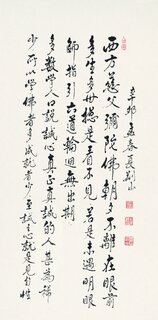 西方慈父彌陀佛朝夕不離在眼前
多生多世揔是看不見若是未遇明眼
師指引六道輪迴無出期
多數學人口說誠心真正真誠的人甚為稀
少所以學佛者多成就者少至誠心就是見自性
辛卯孟春夏荊山